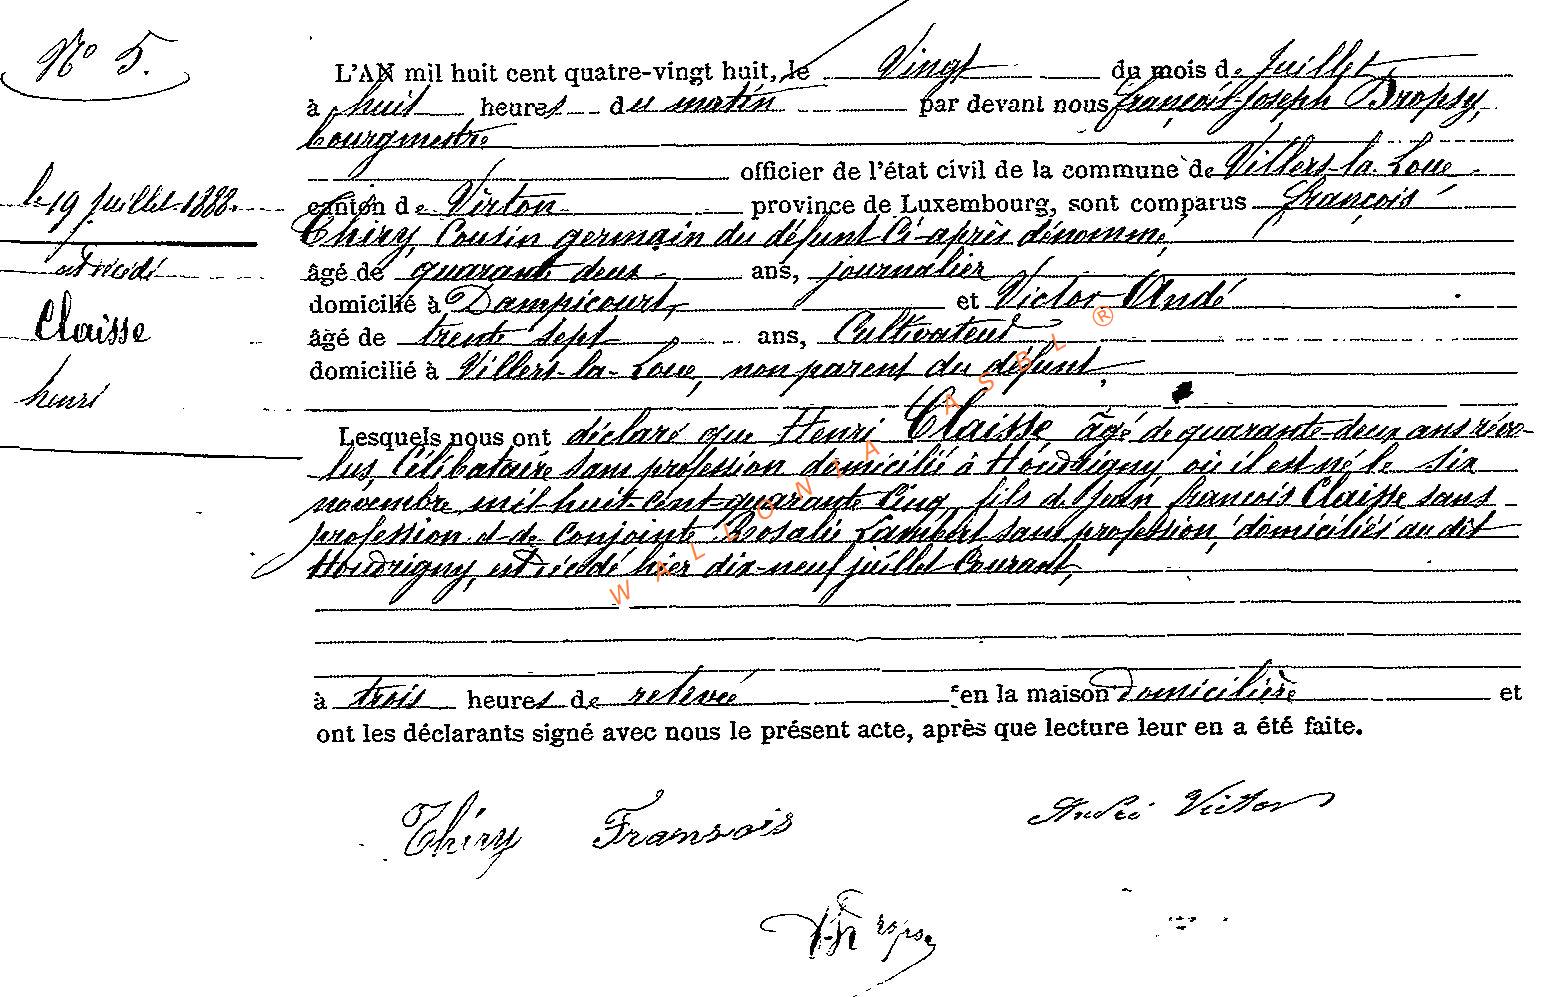 N° 5.
L'AN mil huit cent quatre-vingt huit, le Vingt du mois de Juillet
à huit heures du matin par devant nous françois-Joseph Dropsy,
bourgmestre
officier de l'état civil de la commune de Villers-la-Loue
le 19 Juillet 1888.
canton de Virton province de Luxembourg, sont comparus françois
Thiry, Cousin germain du défunt Ci-après dénommé,
est décédé
âgé de quarante deux ans, journalier
domicilié à Dampicourt, et Victor André
Claisse
âgé de trente sept ans, Cultivateur
domicilié à Villers-la-Loue, non parent du défunt,
henri
Lesquels nous ont déclaré que Henri Claisse âgé de quarante-deux ans révo-
lus, Célibataire sans profession domicilié à Houdrigny où il est né le six
novembre mil-huit-cent-quarante Cinq, fils de Jean françois Claisse sans
profession et de conjointe Rosalie Lambert sans profession, domiciliés au dit
Houdrigny, est décédé hier dix-neuf juillet Courant,
à trois heures de relevée en la maison domicilière et
ont les déclarants signé avec nous le présent acte, après que lecture leur en a été faite.
Thiry Fransois
André Victor
WALLONIA ASBL ®